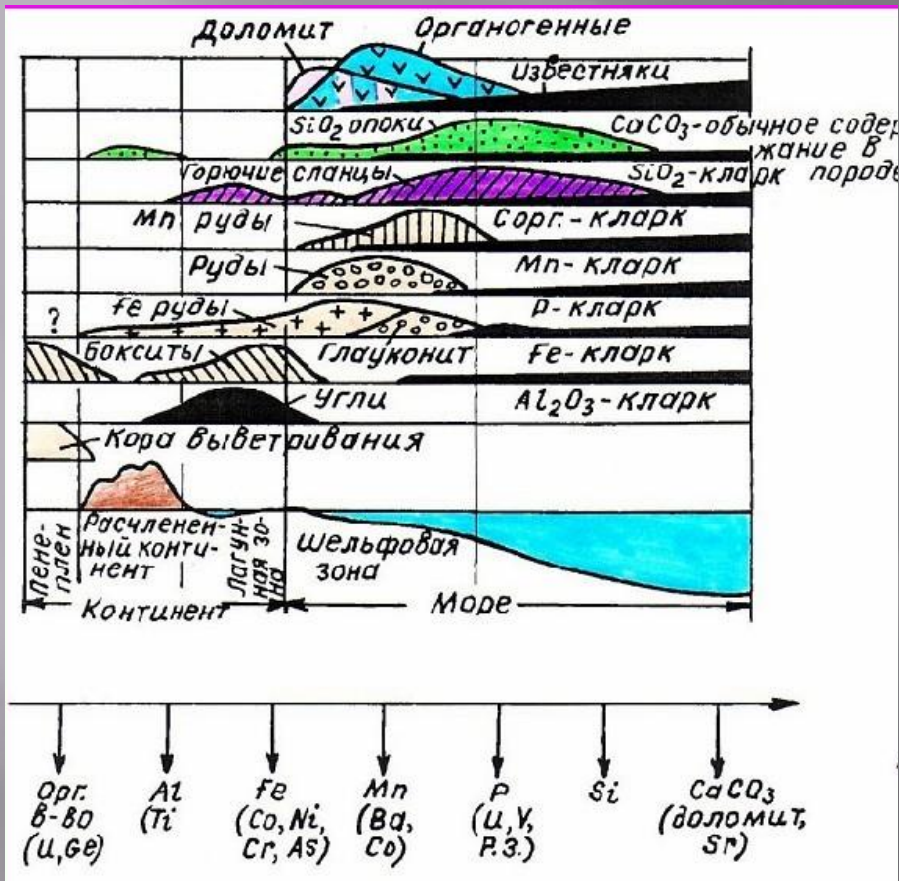 Доломит Органогенные
известняки
SiO₂ опоки CaCO₃-обычное содер
жание в
Горючие сланцы SiO₂-кларк породе
Mn руды Сорг.-кларк
Руды Mn-кларк
? Fe руды P-кларк
Бокситы Глауконит Fe-кларк
Угли Al₂O₃-кларк
Кора выветривания
Пене-
плен
Расчленен-
ный конти-
нент
Лагун-
ная зо-
на
Шельфовая
зона
Континент Море
Орг. Al Fe Mn P Si CaCO₃
в-во (Ti (Co, Ni, (Ba, (U, V, (доломит,
(U, Ge) Cr, As) Co) Р.З.) Sr)